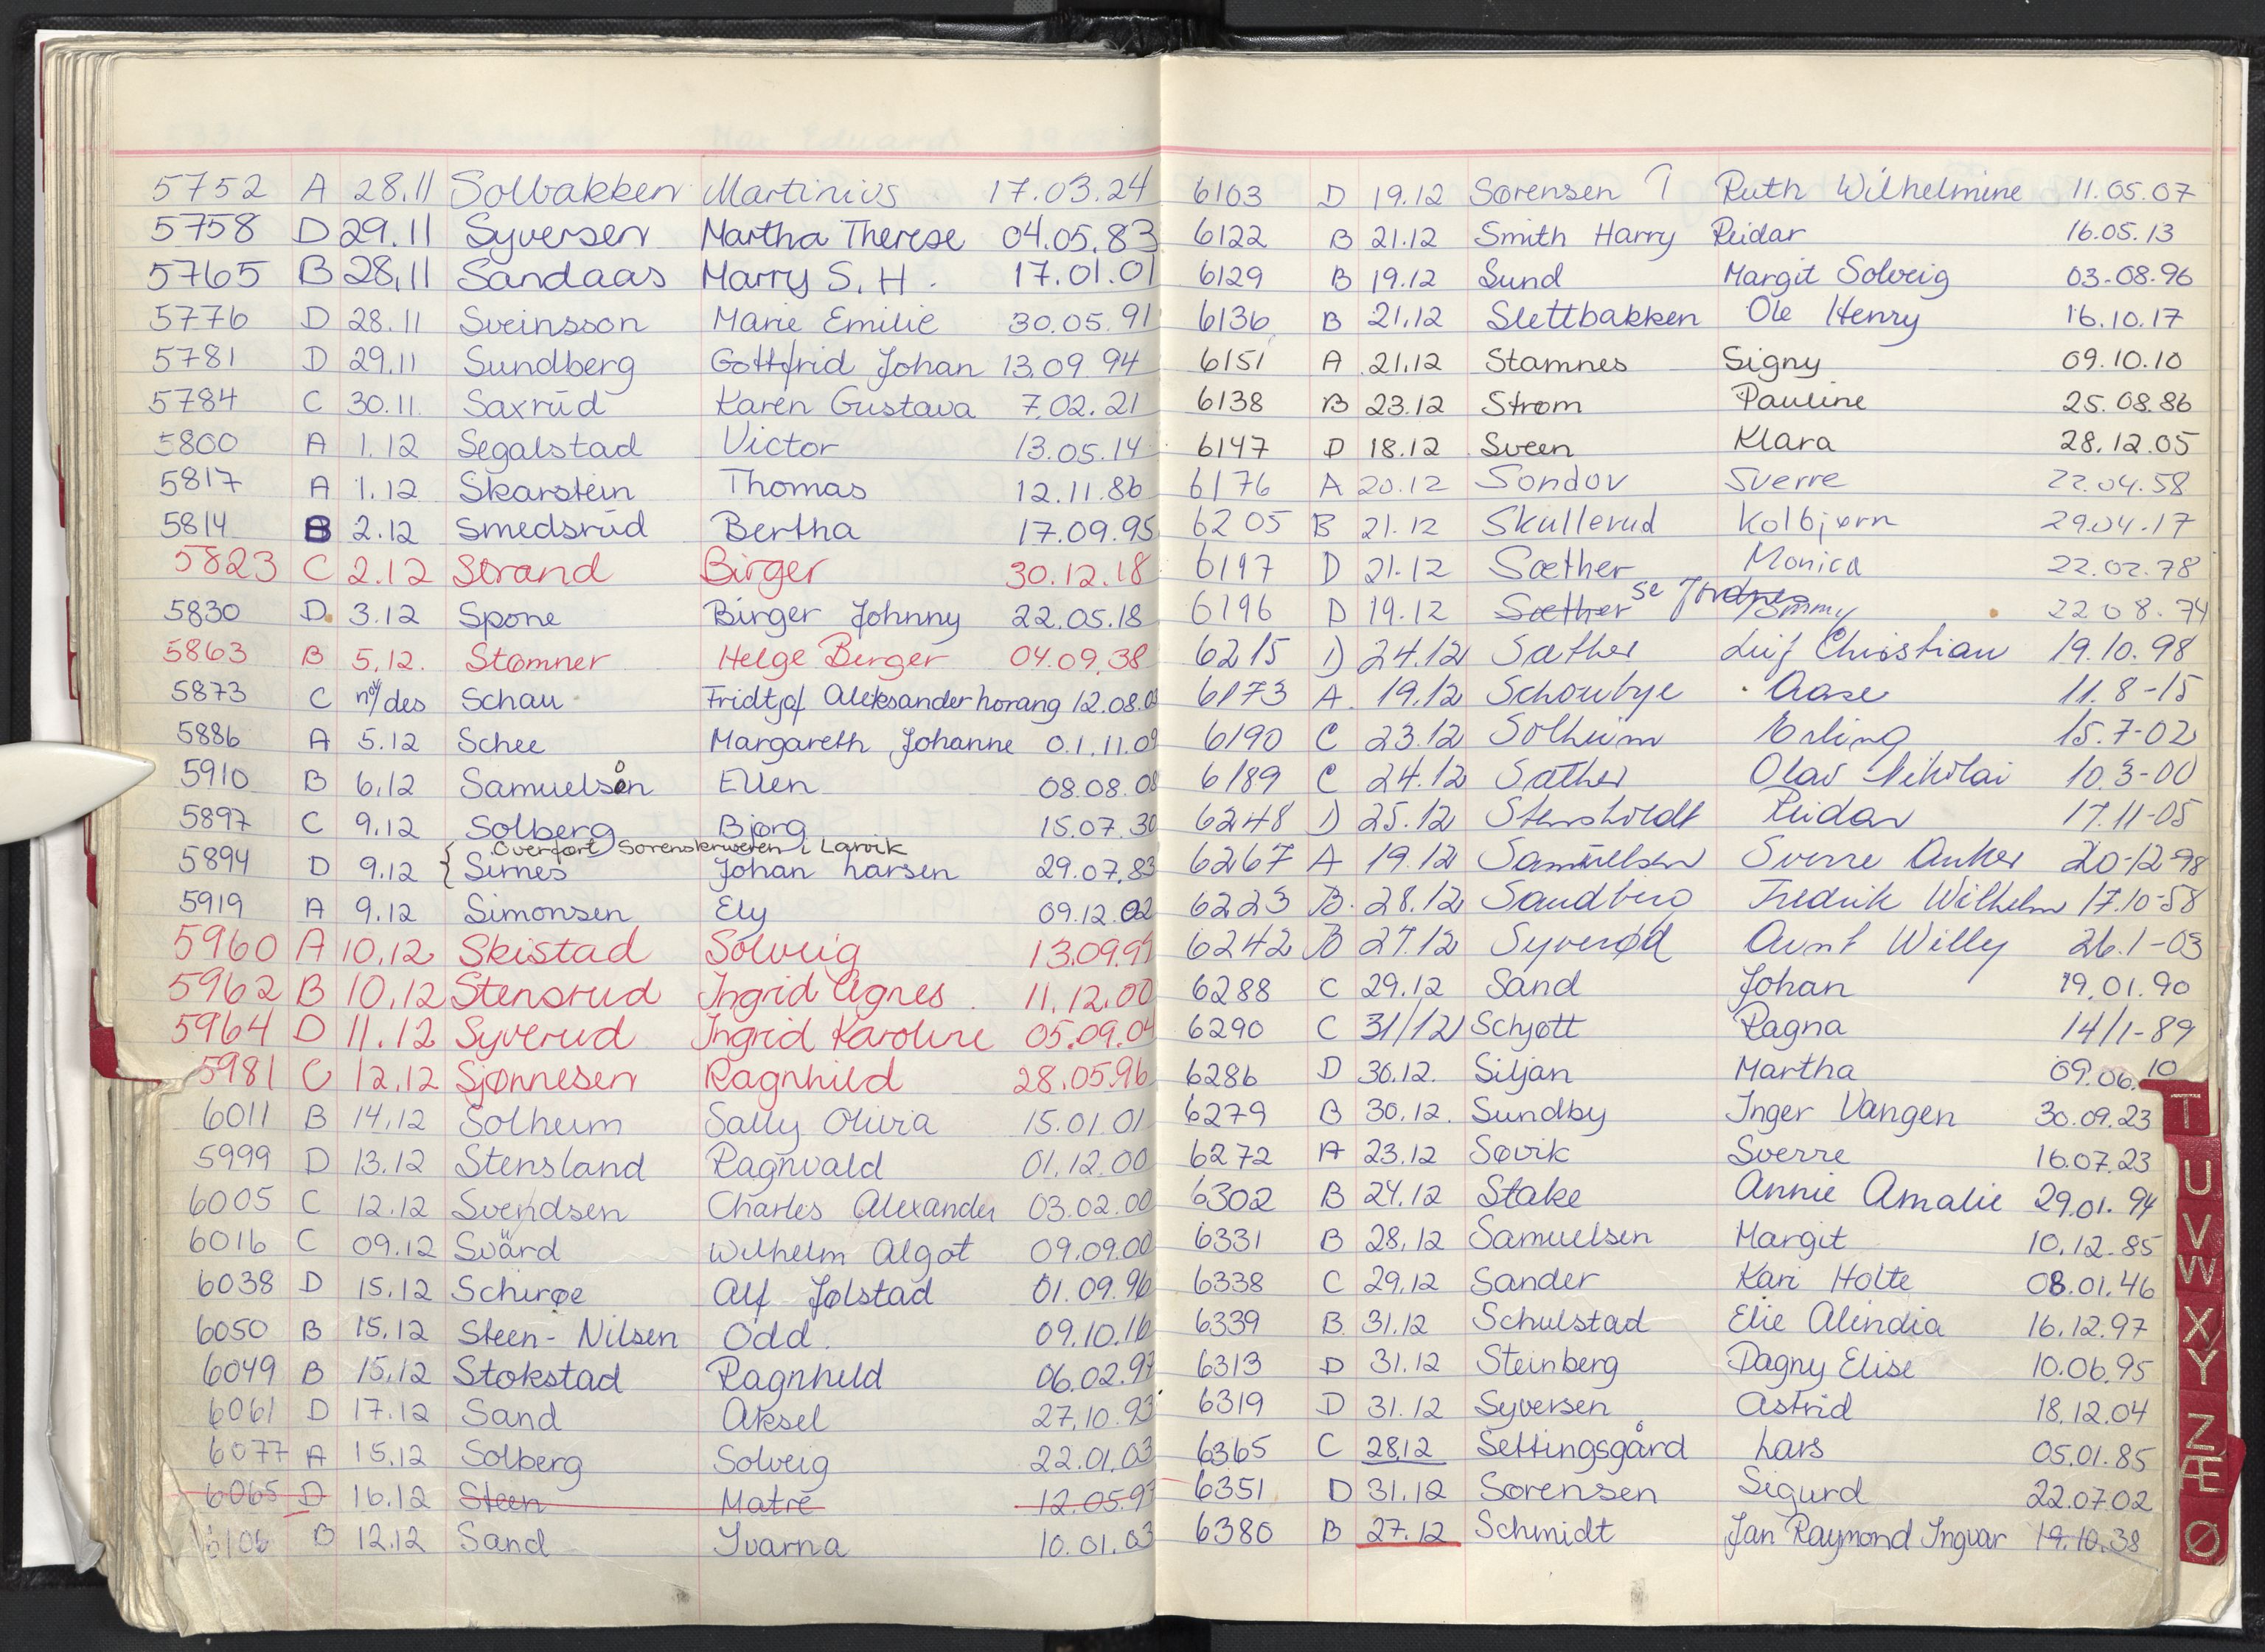 5752 A 28.11 Solbakken Martinius 17.03.24
5758 D 29.11 Syversen Martha Therese 04.05.83
5765 B 28.11 Sandaas Marry S. H. 17.01.01
5776 D 28.11 Sveinsson Marie Emilie 30.05.91
5781 D 29.11 Sundberg Gottfrid Johan 13.09 94
5784 C 30.11. Saxrud Karen Gustava 7.02.21
5800 A 1.12 Segalstad Victor 13.05.14
5817 A 1.12 Skarstein Thomas 12.11.86
5814 B 2.12 Smedsrud Bertha 17.09.95
5823 C 2.12 Strand Birger 30.12.18
5830 D. 3.12 Spone Birger Johnny 22.05.18
5863 B 5.12. Stømner Helge Birger 04.09.38
5873 C nov/des Schau Fridtjof Aleksander horang 12.08.
5886 A 5.12 Schee Margareth Johanne 01.11.09
5910 B 6.12 Samuelsen Ellen 08.08.08
5897 C 9.12 Solberg Bjørg 15.07.30
Overført Sorenskriveren i Larvik
5894 D 9.12 { Sirnes Johan Larsen 29.07.83
5919 A 9.12 Simonsen Ely 09.12.02
5960 A 10.12 Skistad Solveig 13.09.99
5962 B 10.12 Stensrud Ingrid Agnes 11.12.00
5964 D 11.12 Syverud Ingrid Karoline 05.09.04
5981 C 12.12 Sjønnesen Ragnhild 28.05.96
6011 B 14.12 Solheim Sally Olivia 15.01.01
5999 D 13.12 Stensland Ragnvald 01.12.00
6005 C 12.12 Svendsen Charles Alexander 03.02.00
6016 C 09.12 Svärd Wilhelm Algot 09.09.00
6038 D 15.12 Schirøe Alf Jølstad 01.09.96
6050 B 15.12 Steen-Nilsen Odd. 09.10.16
6049 B 15.12 Stokstad Ragnhild 06.02.97
6061 D 17.12 Sand Aksel 27.10.93
6077 A 15.12 Solberg Solveig 22.01.03
6065 D 16.12 Steen Matre 12.05.97
6106 B 12.12 Sand Ivarna 10.01.03
6103 D 19.12 Sørensen Ruth Wilhelmine 11.05.07
6122 B 21.12 Smith Harry Reidar 16.05.13
6129 B 19.12 Sund Margit Solveig 03.08.96
6136 B 21.12 Slettbakken Ole Henry 16.10.17
6151 A 21.12 Stamnes Signy 09.10.10
6138 B 23.12 Strøm Pauline 25.08.86
6147 D 18.12 Sveen Klara 28.12.05
6176 A 20.12 Sondov Sverre 22.04.58
6205 B 21.12 Skullerud Kolbjørn 29.04.17
6197 D 21.12 Sæther Monica 22.02.78
6196 D 19.12 Sæther se 22 08.74
6215 D 24.12 Sæther Leif Christian 19.10.98
6173 A. 19.12 Schoubye Aase 11.8-15
6190 C 23.12 Solheim Erling 15.7-02
6189 C 24.12 Sæther Olav Nikolai 10.3-00
6248 D 25.12 Stensholdt Reidar 17.11-05
6267 A 19.12 Samuelsen Sverre Anker 20-12-98
6223 B. 28.12 Sandberg Fredrik Wilhelm 17.10-58
6242 B 27.12 Syverød Arnt Willy 26.1-03
6288 C 29.12 Sand Johan 19.01.90
6290 C 31/12 Schjøtt Ragna 14/1-89
6286 D 30.12. Siljan Martha 09.06.10
6279 B 30.12. Sundby Inger Vangen 30.09.23
6272 A 23.12 Søvik Sverre 16.07.23
6302 B 24.12 Stake Annie Amalie 29.01.94
6331 B 28.12 Samuelsen Margit 10.12.85
6338 C 29.12 Sander Kari Holte 08.01.46
6339 B. 31.12 Schulstad Elie Alindia 16.12.97
6313 D 31.12 Steinberg Dagny Elise 10.06.95
6319 D 31.12 Syversen Astrid 18.12.04
6365 C 28.12 Settingsgård Lars 05.01.85
6351 D 31.12 Sørensen Sigurd 22.07.02
6380 B 27.12 Schmidt Jan Raymond Ingvar 19.10.38
T
U
V
W
X
Y
Z
Æ
Ø